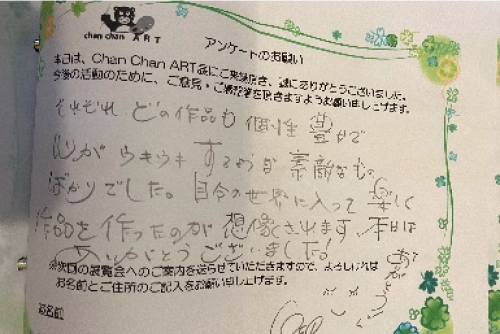 chan chan ART
アンケートのお願い
本日は、Chan Chan ART展にご来場頂き、誠にありがとうございました。
今後の活動のために、ご意見・ご感想等を頂きますようお願い申し上げます。
それぞれ どの作品も 個性 豊かで
心が ウキウキ するような 素敵なもの
ばかりでした。自分の世界に入って 楽しく
作品を 作ったのが 想像されます。本日は
ありがとうございました!
※次回の展覧会へのご案内を送らせていただきますので、よろしければ
お名前とご住所のご記入をお願い申し上げます。
お名前
ありがとう